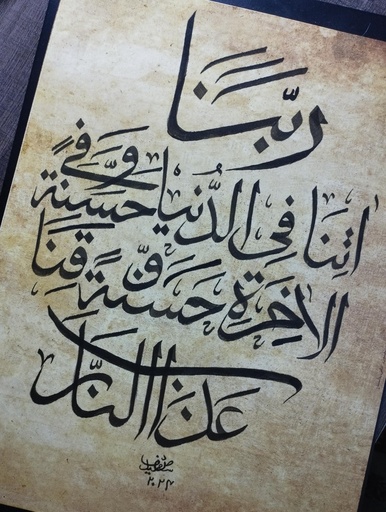 رَبَّنَا
اٰتِنَا فِي الدُّنْيَا حَسَنَةً وَّفِي
الاٰخِرَةِ حَسَنَةً وَّقِنَا
عَذَابَ النَّار